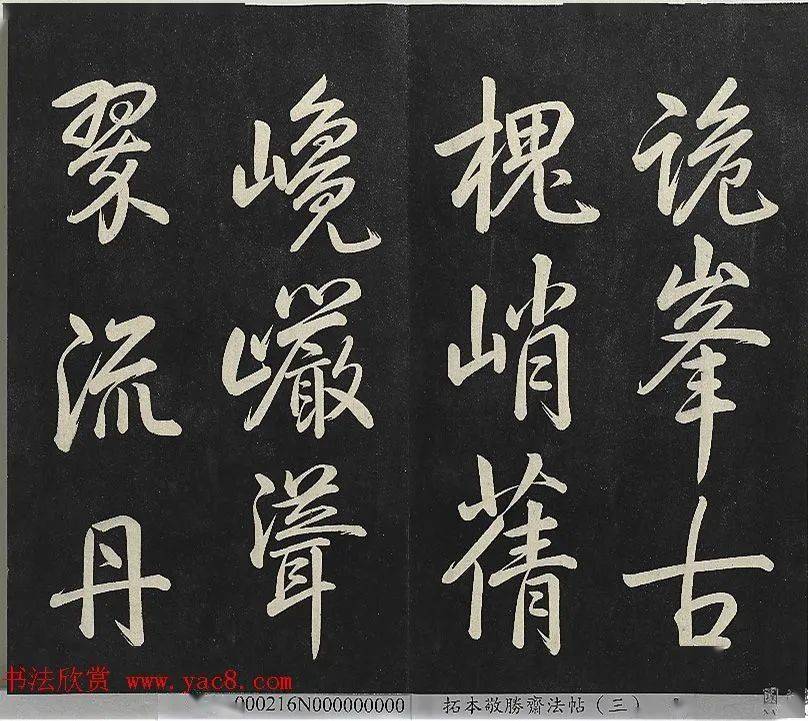 詭峯古
槐峭蒨
巉巗聳
翠流丹
书法欣赏 www.yac8.com
000216N000000000
拓本敬勝齋法帖（三）